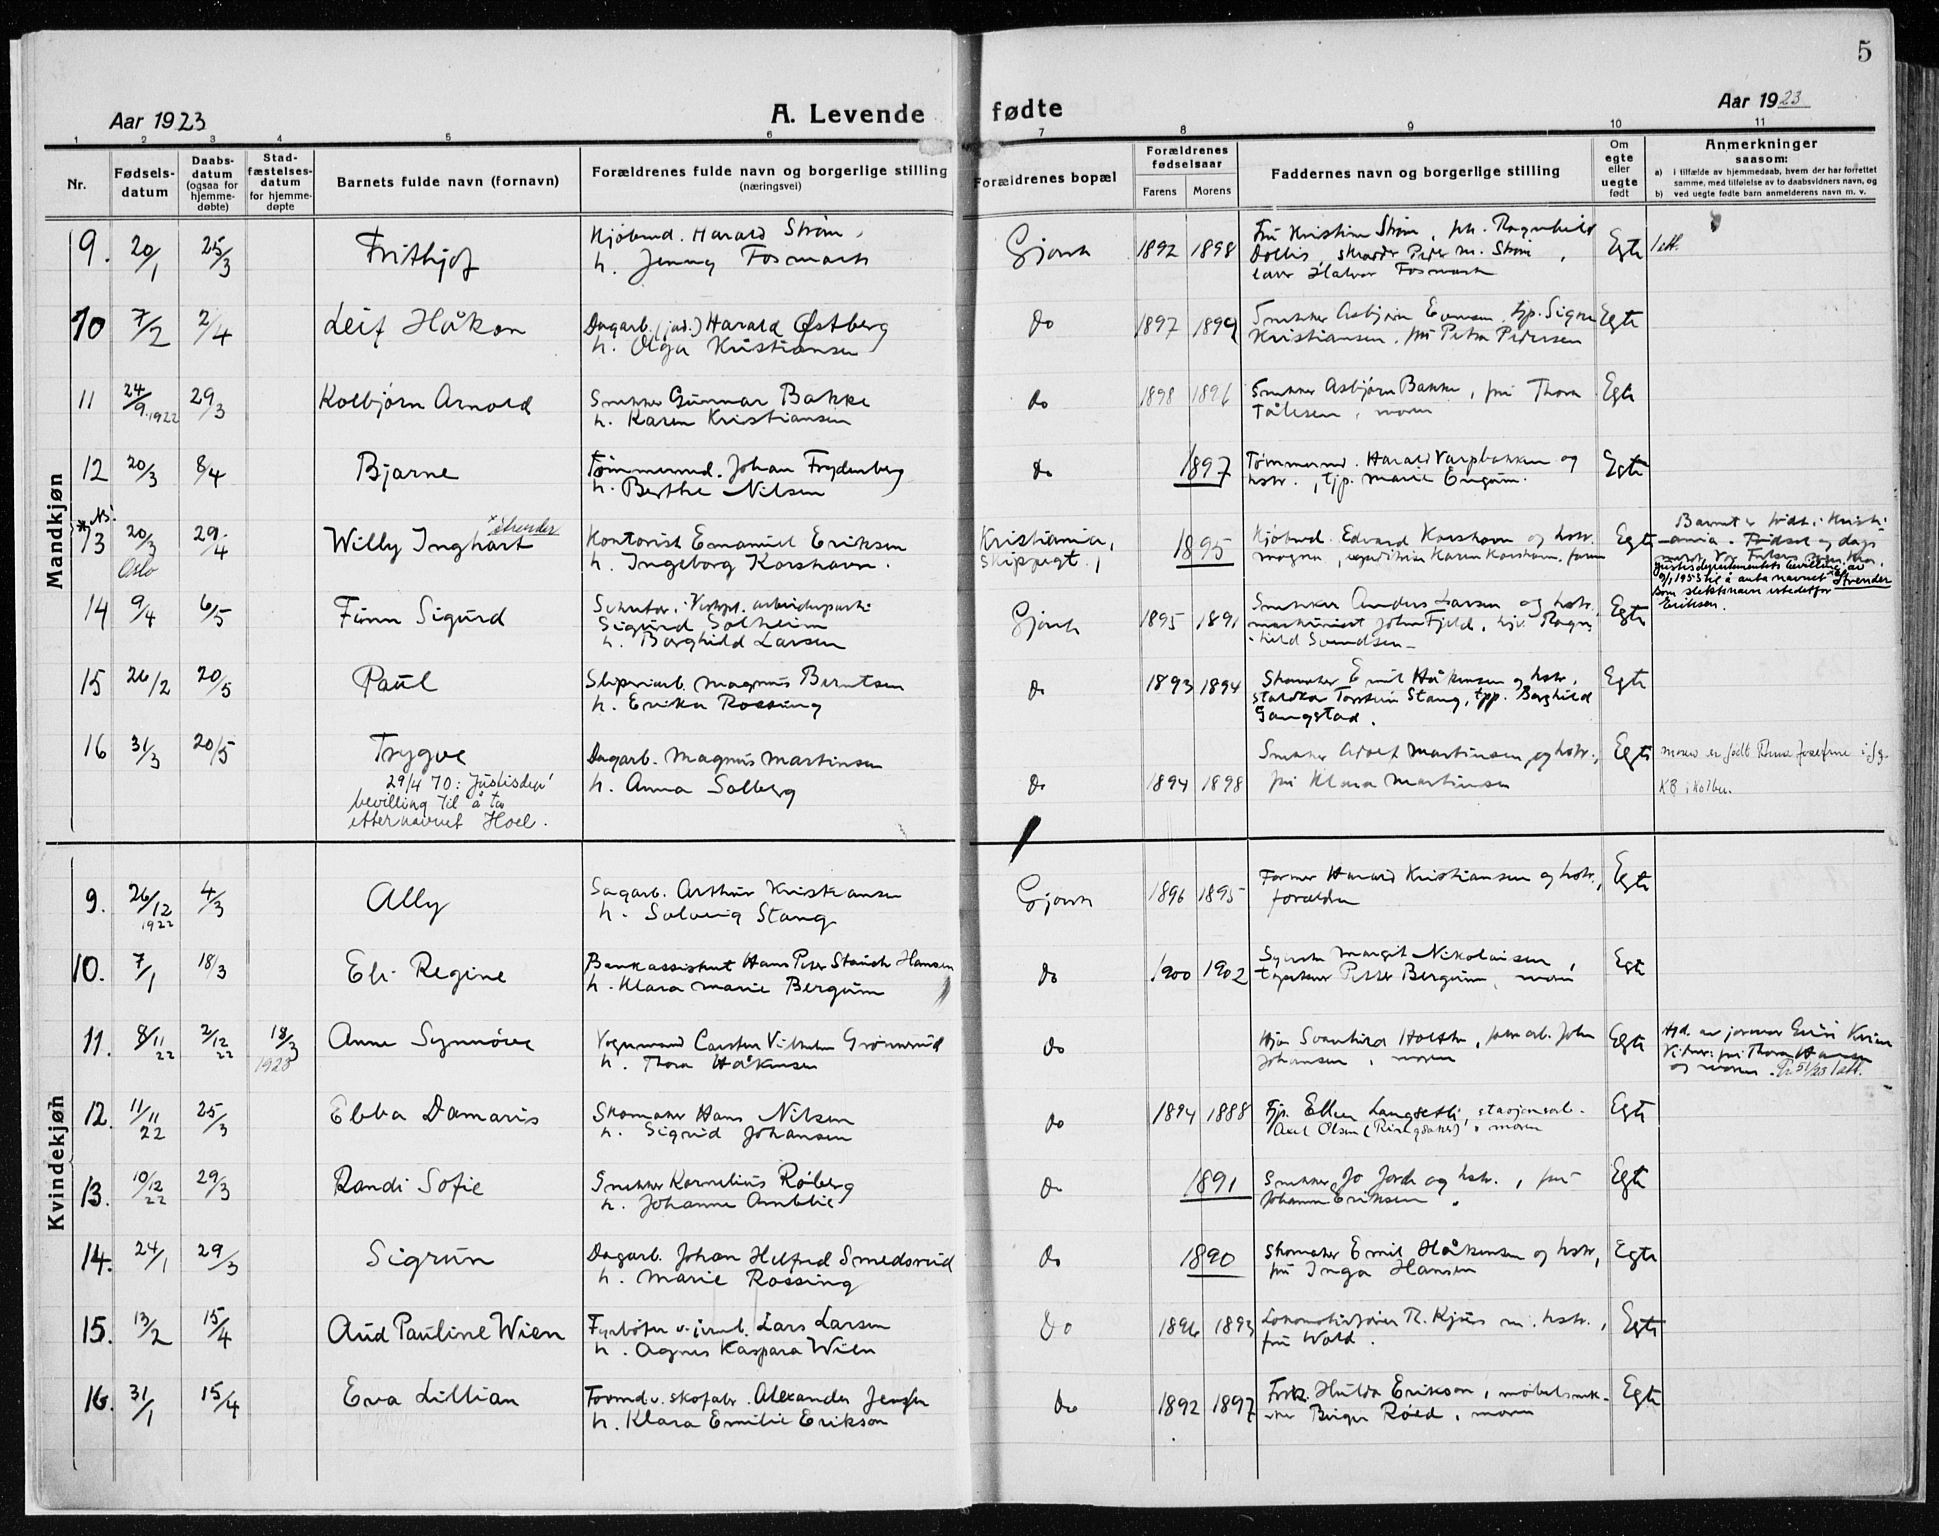 5
Aar 1923
A. Levende fødte
Aar 1923
1 2 3 4 5 6 7 8 9 10 11
Nr.
Fødsels-
datum
Daabs-
datum
(ogsaa for
hjemme-
døbte)
Stad-
fæstelses-
datum
for hjemme-
døpte
Barnets fulde navn (fornavn)
Forældrenes fulde navn og borgerlige stilling
(næringsvei)
Forældrenes bopæl
Forældrenes
fødselsaar
Farens Morens
Faddernes navn og borgerlige stilling
Om
egte
eller
uegte
født
Anmerkninger
saasom:
a) i tilfælde av hjemmedaab, hvem der har forrettet
samme, med tilføielse av to daabsvidners navn, og
b) ved uegte fødte barn anmelderens navn m. v.
Mandkjøn
9. 20/1 25/3 Frithjof
Kjøbmd. Harald Strøm,
h. Jenny Fosmark
Gjøvik 1892 1898
Fru Kristine Strøm, frk. Ragnhild
Dollis, skrædder Peder M. Strøm,
Halvor Fosmark
Egte 1 att.
10 7/2 2/4 Leif Håkon
Dagarb. (jod.) Harald Østberg
h. Olga Kristiansen
do 1897 1899
Snekker Asbjørn Evensen, tjp. Signe
Kristiansen, fru Petra Pedersen
Egte
11 24/9 1922 29/3 Kolbjørn Arnold
Snekker Gunnar Bakke
h. Karen Kristiansen
do 1898 1896
Snekker Asbjørn Bakke, fru Thora
moren
Egte
12 20/3 8/4 Bjarne
Tømmermd. Johan Frydenberg
h. Berthe Nilsen
do 1897
Tømmermd. Harald Varpbakken og
hstr., tjp. Marie Engum.
Egte
13 20/3 Oslo 29/4 Willy Inghart × Strender
Kontorist Emanuel Eriksen
h. Ingeborg Korshavn.
Kristiania,
Skippergt.,
1895
Kjøbmd. Edvard Korshavn og hstr.
Magna, Karen Korshavn, faren
Egte
Barnet er født i Kristi-
ania. Fødsel og daab
Justisdepartementets bevilling av
9/1 1953 til å anta navnet Strender
som slektsnavn istedetfor
Eriksen.
14 9/4 6/5 Finn Sigurd
Sekretær i Vestopl. arbeiderparti
Sigurd Solheim
h. Borghild Larsen
Gjøvik 1895 1891
Snekker Anders Larsen og hstr.,
maskinist John Fjeld, hjv. Ragn-
hild Svendsen
Egte
15 26/2 20/5 Paul
Sliperiarb. Magnus Berntsen
h. Erika Rossing
do 1893 1894
Skomaker Emil Håkensen og hstr.,
Torstein Stang, tjp. Borghild
Gangstad.
Egte
16 31/3 20/5 Trygve
29/4 70: Justisdep'
bevilling til å ta
etternavnet Hoel.
Dagarb. Magnus Martinsen
h. Anna Solberg
do 1894 1898
Snekker Adolf Martinsen og hstr.,
fru Klara Martinsen
Egte
moren er født Anna Josefine i flg.
KB i Kolbu.
Kvindekjøn
9. 26/12 1922 4/3 Ally
Sagarb. Arthur Kristiansen
h. Solveig Stang
Gjøvik 1896 1895
Former Harald Kristiansen og hstr.,
forældre
Egte
10. 7/1 18/3 Eli Regine
Bankassistent Hans Peter Stauch Hansen
h. Klara Marie Bergum
do 1900 1902
Syerske Margit Nikolaisen,
Petter Bergum, moren
Egte
11. 8/11 22 2/12 22 18/3 1923 Anne Synnöve
Vognmand Carsten Vilhelm Grønnerud
h. Thora Håkensen
do
Svanhild Holth, John
Johansen, moren
Egte
Hjd. av jormor
Vidner: fru Thora Hansen
og moren. 1 att.
12. 11/11 22 25/3 Ebba Damaris
Skomaker Hans Nilsen
h. Sigrid Johansen
do 1894 1888
Tjp. Ellen Langseth, stasjonsarb.
Axel Olsen (Ringsaker), moren
Egte
13. 10/12 22 29/3 Randi Sofie
Snekker Kornelius Røberg
h. Johanne Amblie
do 1891
Snekker Jo Jorde og hstr., fru
Johanne Eriksen.
Egte
14. 24/1 29/3 Sigrun
Dagarb. Johan Hilfred Smedsrud
h. Marie Rossing
do 1890
Skomaker Emil Håkensen og hstr.,
fru Inga Hansen
Egte
15. 13/2 15/4 Aud Pauline Wien
Fyrbøter v. jernb. Lars Larsen
h. Agnes Kaspara Wien
Do 1896 1893
Lokomotivfører R. Kjus m. hstr.,
fru Wold.
Egte
16. 31/1 15/4 Eva Lillian
Formd. v. skofabr. Alexander
h. Klara Emilie Erikson
do 1892 1897
Frk. Hulda Erikson, møbelsnek-
ker Birger Røed, moren
Egte